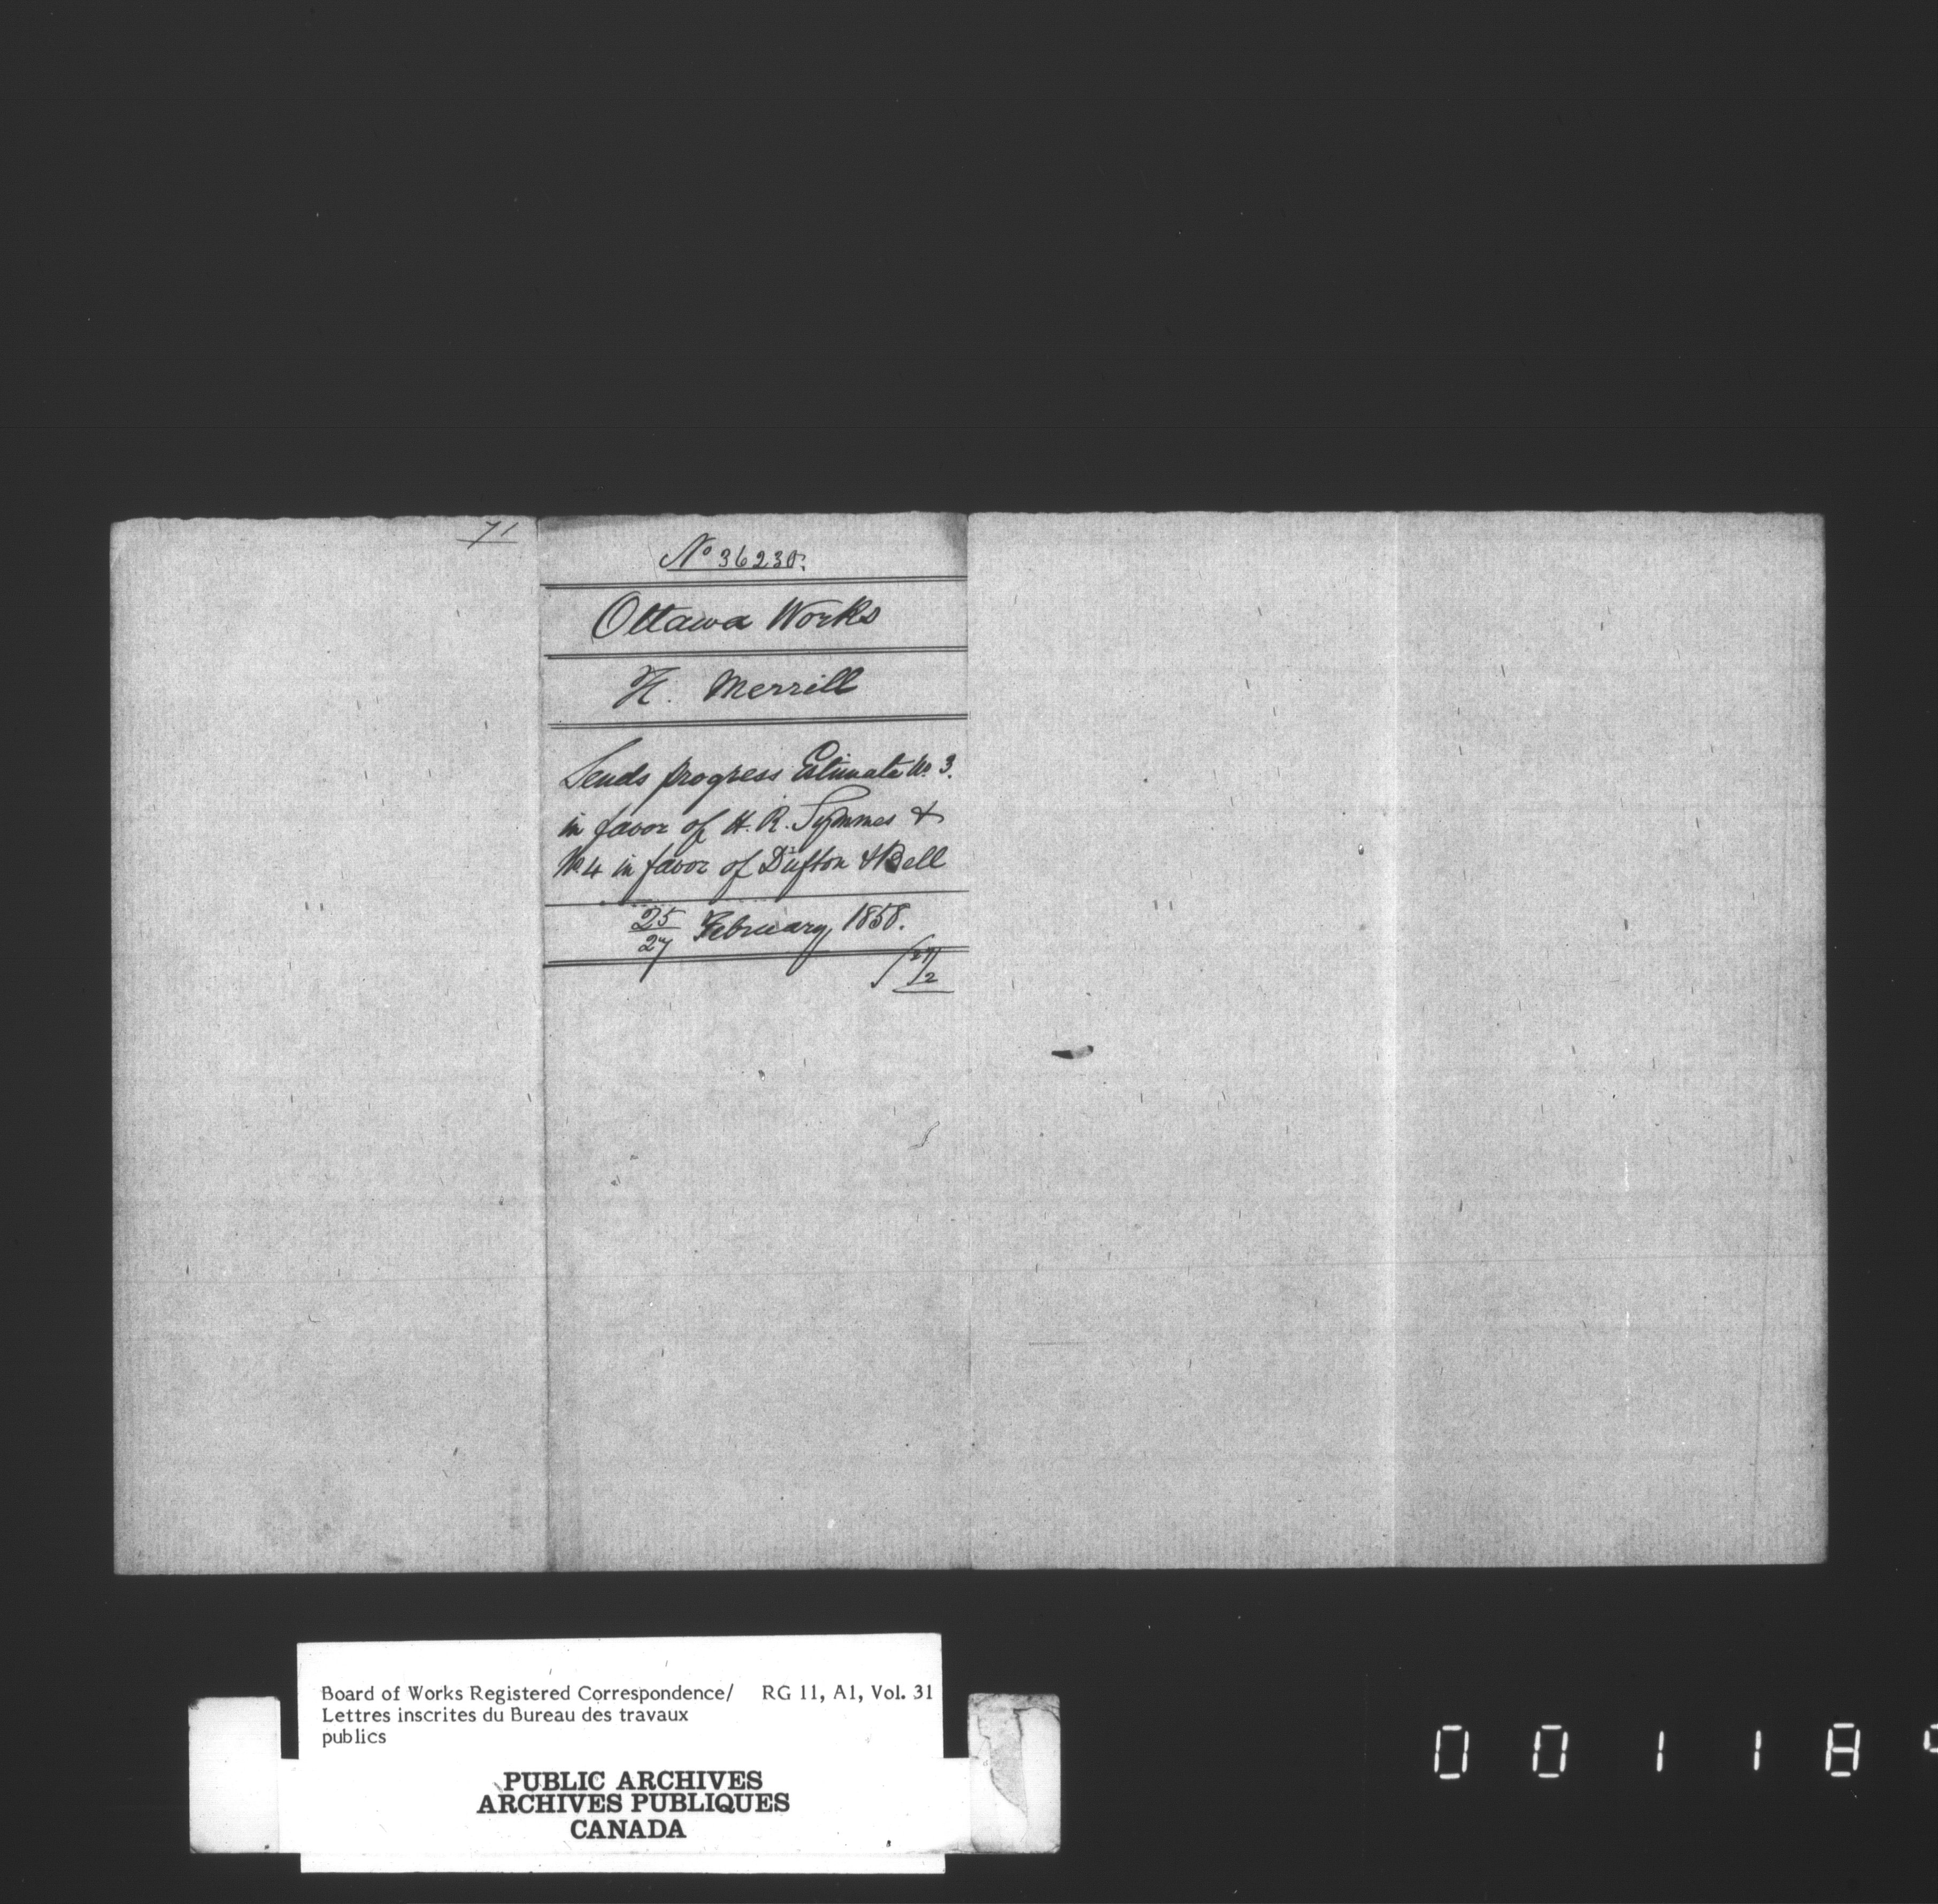 71
No 36230.
Ottawa Works
H. Merrill
Sends progress Estimate No. 3.
in favor of H. R. Symmes &
No. 4 in favor of Dufton & Bell
25/27 February, 1858.
27/2
Board of Works Registered Correspondence/ RG 11, A1, Vol. 31
Lettres inscrites du Bureau des travaux
publics
PUBLIC ARCHIVES
ARCHIVES PUBLIQUES
CANADA
00118